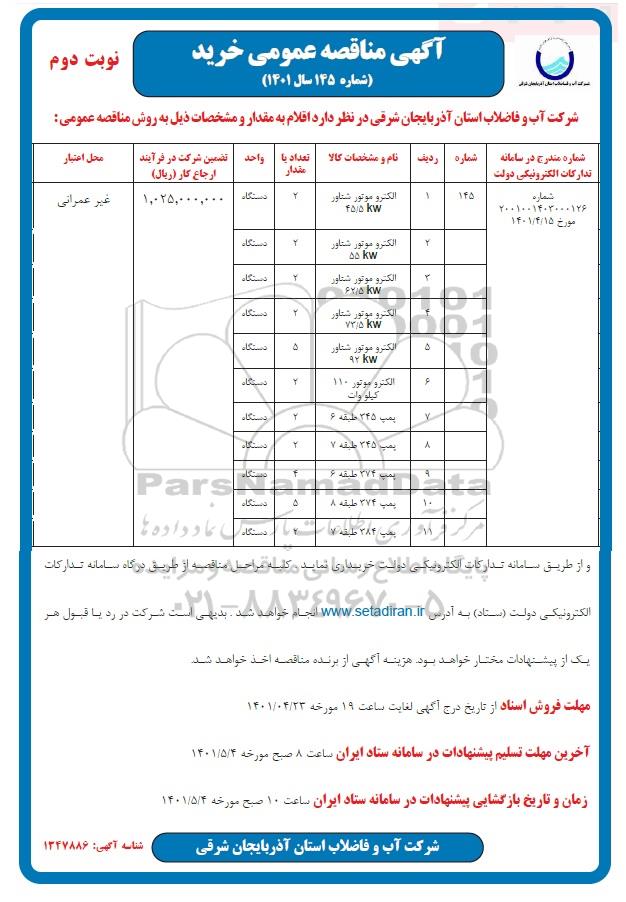 آگهی مناقصه عمومی خرید
(شماره ۱۴۵ سال ۱۴۰۱)
نوبت دوم
شرکت آب و فاضلاب استان آذربایجان شرقی
شرکت آب و فاضلاب استان آذربایجان شرقی در نظر دارد اقلام به مقدار و مشخصات ذیل به روش مناقصه عمومی :
شماره مندرج در سامانه تدارکات الکترونیکی دولت | شماره | ردیف | نام و مشخصات کالا | تعداد یا مقدار | واحد | تضمین شرکت در فرآیند ارجاع کار (ریال) | محل اعتبار
شماره ۲۰۰۱۰۰۱۴۰۳۰۰۰۱۲۶ مورخ ۱۴۰۱/۴/۱۵ | ۱۴۵ | ۱ | الکترو موتور شناور ۴۵/۵ kw | ۲ | دستگاه | ۱,۰۲۵,۰۰۰,۰۰۰ | غیر عمرانی
۲ | الکترو موتور شناور ۵۵ kw | ۲ | دستگاه
۳ | الکترو موتور شناور ۶۲/۵ kw | ۲ | دستگاه
۴ | الکترو موتور شناور ۷۳/۵ kw | ۲ | دستگاه
۵ | الکترو موتور شناور ۹۲ kw | ۵ | دستگاه
۶ | الکترو موتور ۱۱۰ کیلو وات | ۲ | دستگاه
۷ | پمپ ۳۴۵ طبقه ۶ | ۲ | دستگاه
۸ | پمپ ۳۴۵ طبقه ۷ | ۲ | دستگاه
۹ | پمپ ۳۷۴ طبقه ۶ | ۴ | دستگاه
۱۰ | پمپ ۳۷۴ طبقه ۸ | ۵ | دستگاه
۱۱ | پمپ ۳۸۴ طبقه ۷ | ۲ | دستگاه
ParsNamadData
مرکز فرآوری اطلاعات پارس نماد داده ها
پایگاه اطلاع رسانی مناقصه و مزایده
۰۲۱-۸۸۳۴۹۶۷۰-۵
و از طریق سامانه تدارکات الکترونیکی دولت خریداری نماید . کلیه مراحل مناقصه از طریق درگاه سامانه تدارکات
الکترونیکی دولت (ستاد) به آدرس www.setadiran.ir انجام خواهد شد . بدیهی است شرکت در رد یا قبول هر
یک از پیشنهادات مختار خواهد بود. هزینه آگهی از برنده مناقصه اخذ خواهد شد.
مهلت فروش اسناد از تاریخ درج آگهی لغایت ساعت ۱۹ مورخه ۱۴۰۱/۰۴/۲۳
آخرین مهلت تسلیم پیشنهادات در سامانه ستاد ایران ساعت ۸ صبح مورخه ۱۴۰۱/۵/۴
زمان و تاریخ بازگشایی پیشنهادات در سامانه ستاد ایران ساعت ۱۰ صبح مورخه ۱۴۰۱/۵/۴
شرکت آب و فاضلاب استان آذربایجان شرقی
شناسه آگهی: ۱۳۴۷۸۸۶